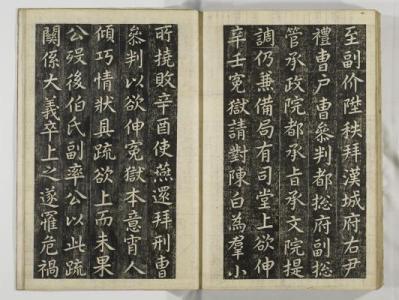 至副价陞秩拜漢城府右尹
禮曹户曹叅判都捴府副捴
管承政院都承旨承文院提
調仍兼備局有司堂上欲伸
辛壬寃獄請對陳白為羣小
所撓敗辛酉使燕還拜刑曹
叅判以欲伸寃獄本意宵人
傾巧情狀具疏欲上而未果
公歿後伯氏副率公以此疏
關係大義卒上之遂罹危禍